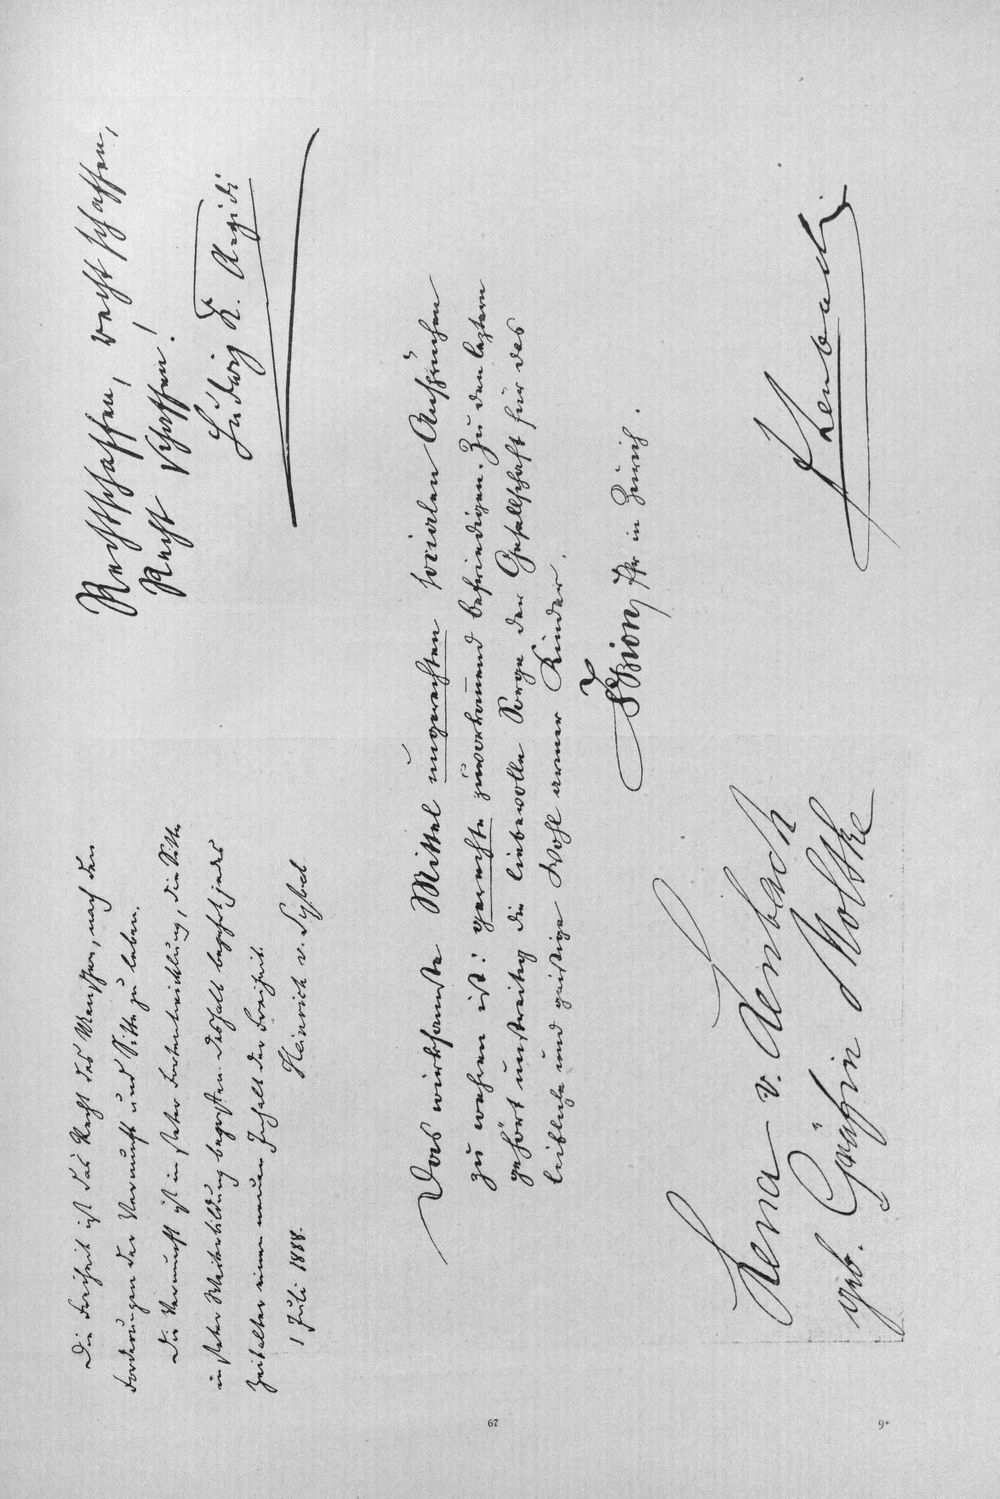 Die Freiheit ist das Recht des Menschen, nach den
Forderungen der Vernunft und Sitte zu leben.
Die Vernunft ist in steter Fortentwicklung, die Sitte
in steter Weiterbildung begriffen. Deshalb begehrt jedes
Zeitalter einen neuen Inhalt der Freiheit.
1 Juli 1888. Heinrich v. Sybel
Rechtschaffen, recht schaffen,
Recht schaffen!
Ludwig K. Aegidi
Das wirksamste Mittel ungerechten socialen Ansprüchen
zu wehren ist: gerechte zuvorkom̅end befriedigen. Zu den leztern
gehört unstreitig die liebevolle Sorge der Gesellschaft für das
leibliche und geistige Wohl armer Kinder.
Bion, Pfr in Zürich.
Lena v. Lenbach
geb. Gräfin Moltke
F Lenbach
67
9*